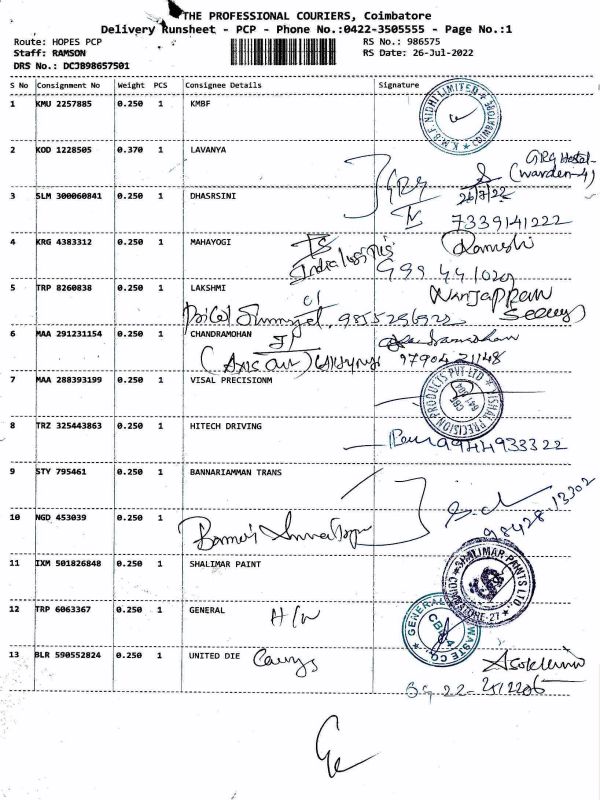 THE PROFESSIONAL COURIERS, Coimbatore
Delivery Runsheet - PCP - Phone No.:0422-3505555 - Page No.:1
Route: HOPES PCP RS No.: 986575
Staff: RAMSON RS Date: 26-Jul-2022
DRS No.: DCJB98657501
S No Consignment No Weight PCS Consignee Details Signature
1 KMU 2257885 0.250 1 KMBF
K.M.B.F. NIDHI LIMITED COIMBATORE
2 KOD 1228505 0.370 1 LAVANYA
GRG Hostel
(warden-4)
3 SLM 300060841 0.250 1 DHASRSINI
GRG 26/7/22
7339141222
4 KRG 4383312 0.250 1 MAHAYOGI
India logistics Ramesh
5 TRP 8260838 0.250 1 LAKSHMI
6 MAA 291231154 0.250 1 CHANDRAMOHAN
(Axis
7 MAA 288393199 0.250 1 VISAL PRECISIONM
VISHAL PRECISION PRODUCTS PVT LTD
CBT
641 004
8 TRZ 325443863 0.250 1 HITECH DRIVING
9944933322
9 STY 795461 0.250 1 BANNARIAMMAN TRANS
10 NGD 453039 0.250 1
98428-13302
11 IXM 501826848 0.250 1 SHALIMAR PAINT
SHALIMAR PAINTS LTD.
12 TRP 6063367 0.250 1 GENERAL H/W
GENERAL WASTE CO.
13 BLR 590552824 0.250 1 UNITED DIE